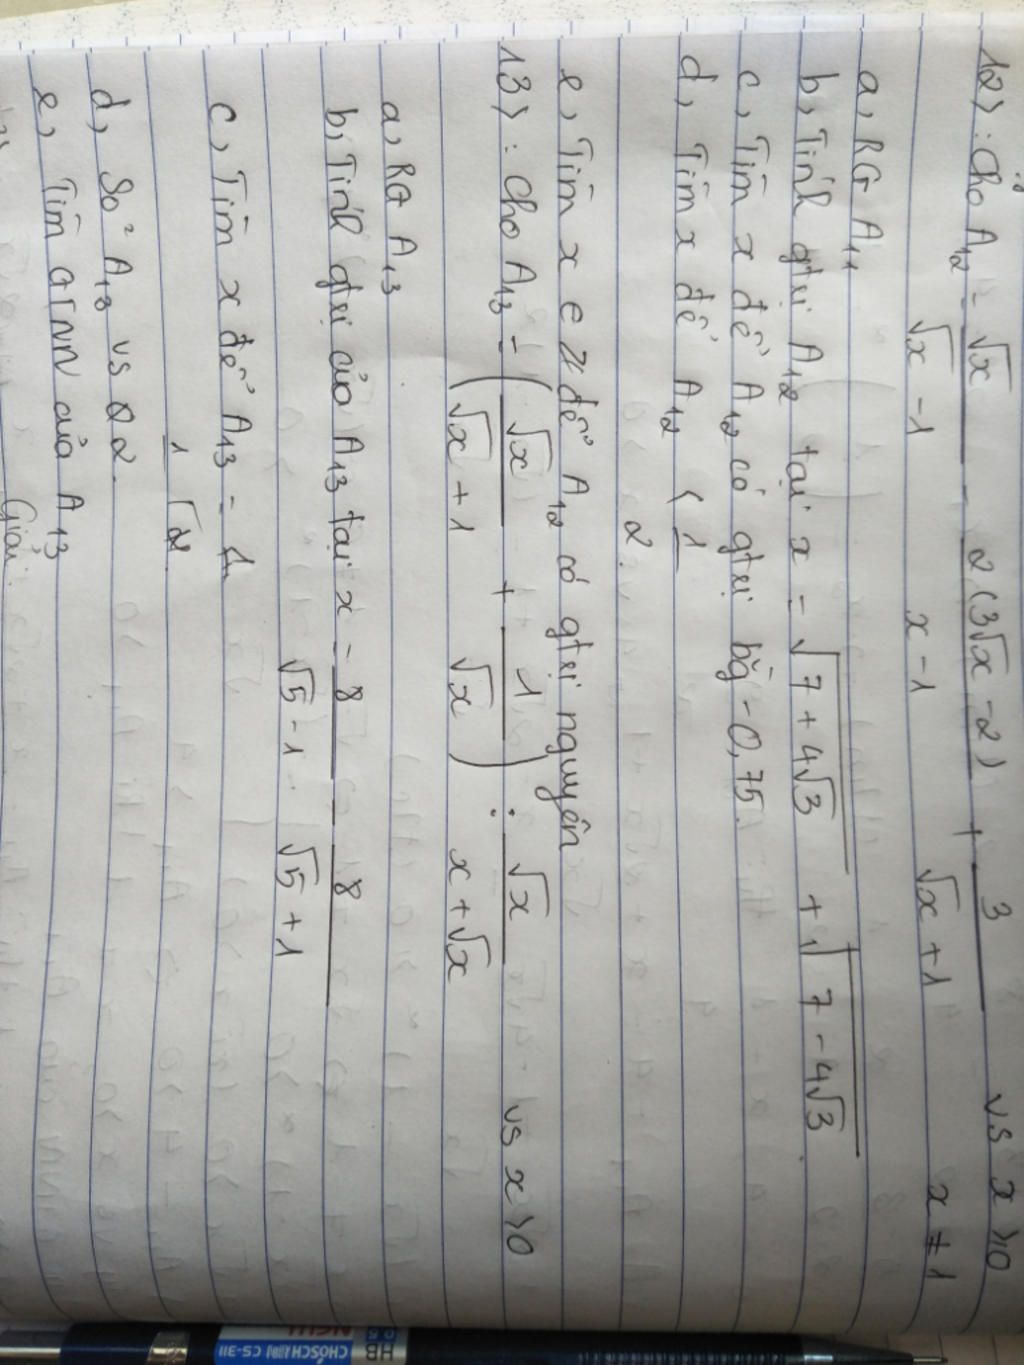 12) : Cho A₁₂ = √x / (√x - 1) - 2(3√x - 2) / (x - 1) + 3 / (√x + 1) vs x ≥ 0 x ≠ 1
a, RG A₁₁
b, Tính gtrị A₁₂ tại x = √(7 + 4√3) + √(7 - 4√3).
c, Tìm x để A₁₂ có gtrị bằg - 0,75.
d, Tìm x để A₁₂ < 1/2.
e, Tìm x ∈ Z để A₁₂ có gtrị nguyên
13) : Cho A₁₃ = (√x / (√x + 1) + 1 / √x) : √x / (x + √x) vs x > 0
a, RG A₁₃
b, Tính gtrị của A₁₃ tại x = 8 / (√5 - 1) - 8 / (√5 + 1)
c, Tìm x để A₁₃ = 1.
d, So² A₁₃ vs 2.
e, Tìm GTNN của A₁₃
Giải:
HB 0.5
CHOSCH CS-311